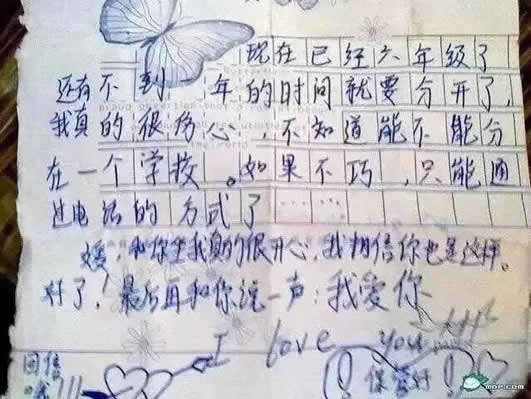 现在已经六年级了
还有不到一年的时间就要分开了,
我真的很伤心,不知道能不能分
在一个学校。如果不巧,只能通
过电话的方式了……
媛:和你坐我真的很开心,我相信你也是这样。
好了!最后再和你说一声:我爱你
I love you
回信
哦!!!
保管好
mop.com